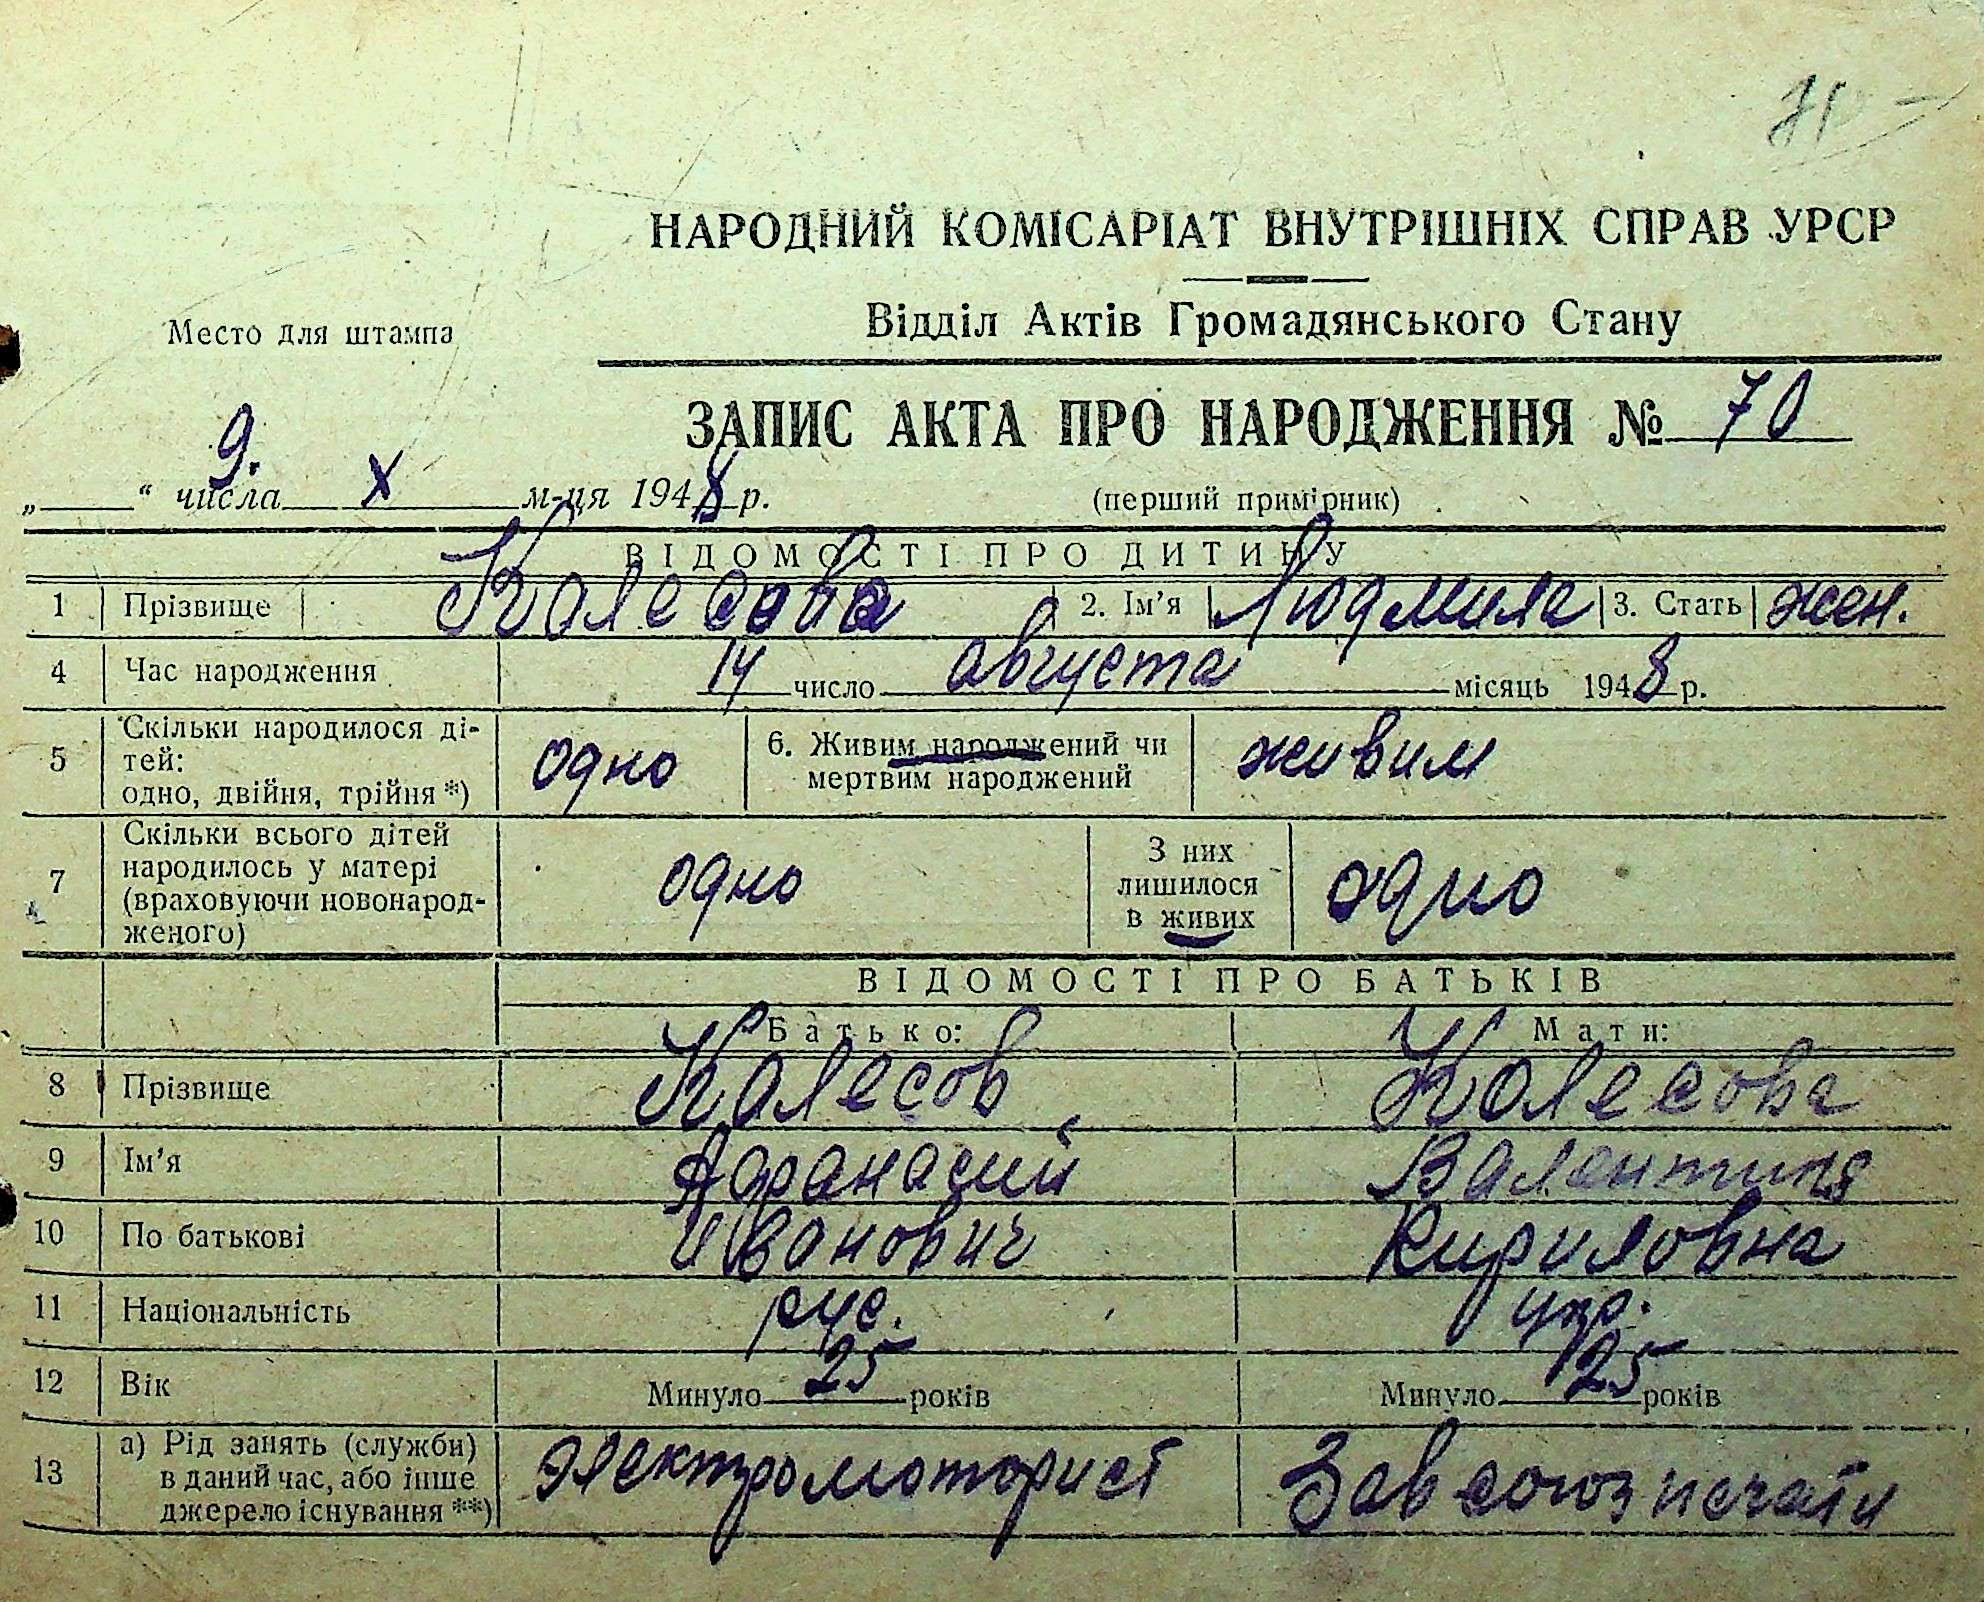 НАРОДНИЙ КОМІСАРІАТ ВНУТРІШНІХ СПРАВ УРСР
Відділ Актів Громадянського Стану
Место для штампа
ЗАПИС АКТА ПРО НАРОДЖЕННЯ № 70
„ “ 9. числа X м-ця 1948 р. (перший примірник)
ВІДОМОСТІ ПРО ДИТИНУ
1 Прізвище Колесова 2. Ім’я Людмила 3. Стать жен.
4 Час народження 14 число августа місяць 1948 р.
5 Скільки народилося ді-
тей:
одно, двійня, трійня *) одно 6. Живим народжений чи
мертвим народжений живим
7 Скільки всього дітей
народилось у матері
(враховуючи новонарод-
женого) одно З них
лишилося
в живих одно
ВІДОМОСТІ ПРО БАТЬКІВ
Батько: Мати:
8 Прізвище Колесов Колесова
9 Ім’я Афанасий Валентина
10 По батькові Иванович Кириловна
11 Національність рус. укр.
12 Вік Минуло 25 років Минуло 25 років
13 а) Рід занять (служби)
в даний час, або інше
джерело існування **) Электромоторист Зав союзпечати